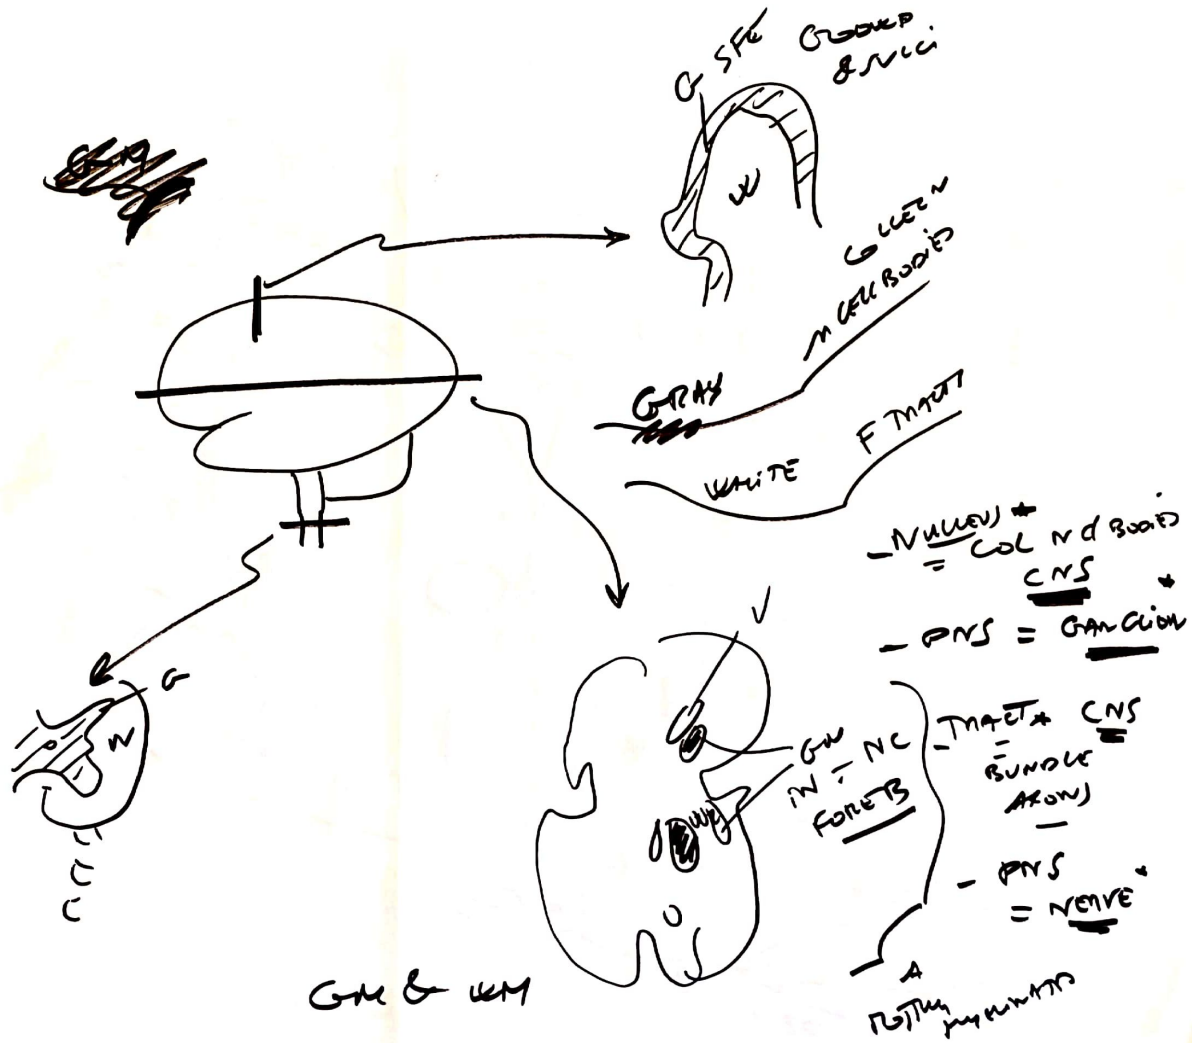 G SFC GROOVED
& SULCI
W
COLLECN
N CELL BODIES
GRAY
F TRACTS
WHITE
- NUCLEUS *
= COL N C BODIES
CNS
*
- PNS = GANGLION
V
G
W
GM
IN = NC
FOREB
- TRACT * CNS
=
BUNDLE
AXONS
- PNS
= NERVE *
A
MOSTLY MYELINATED
GM & WM